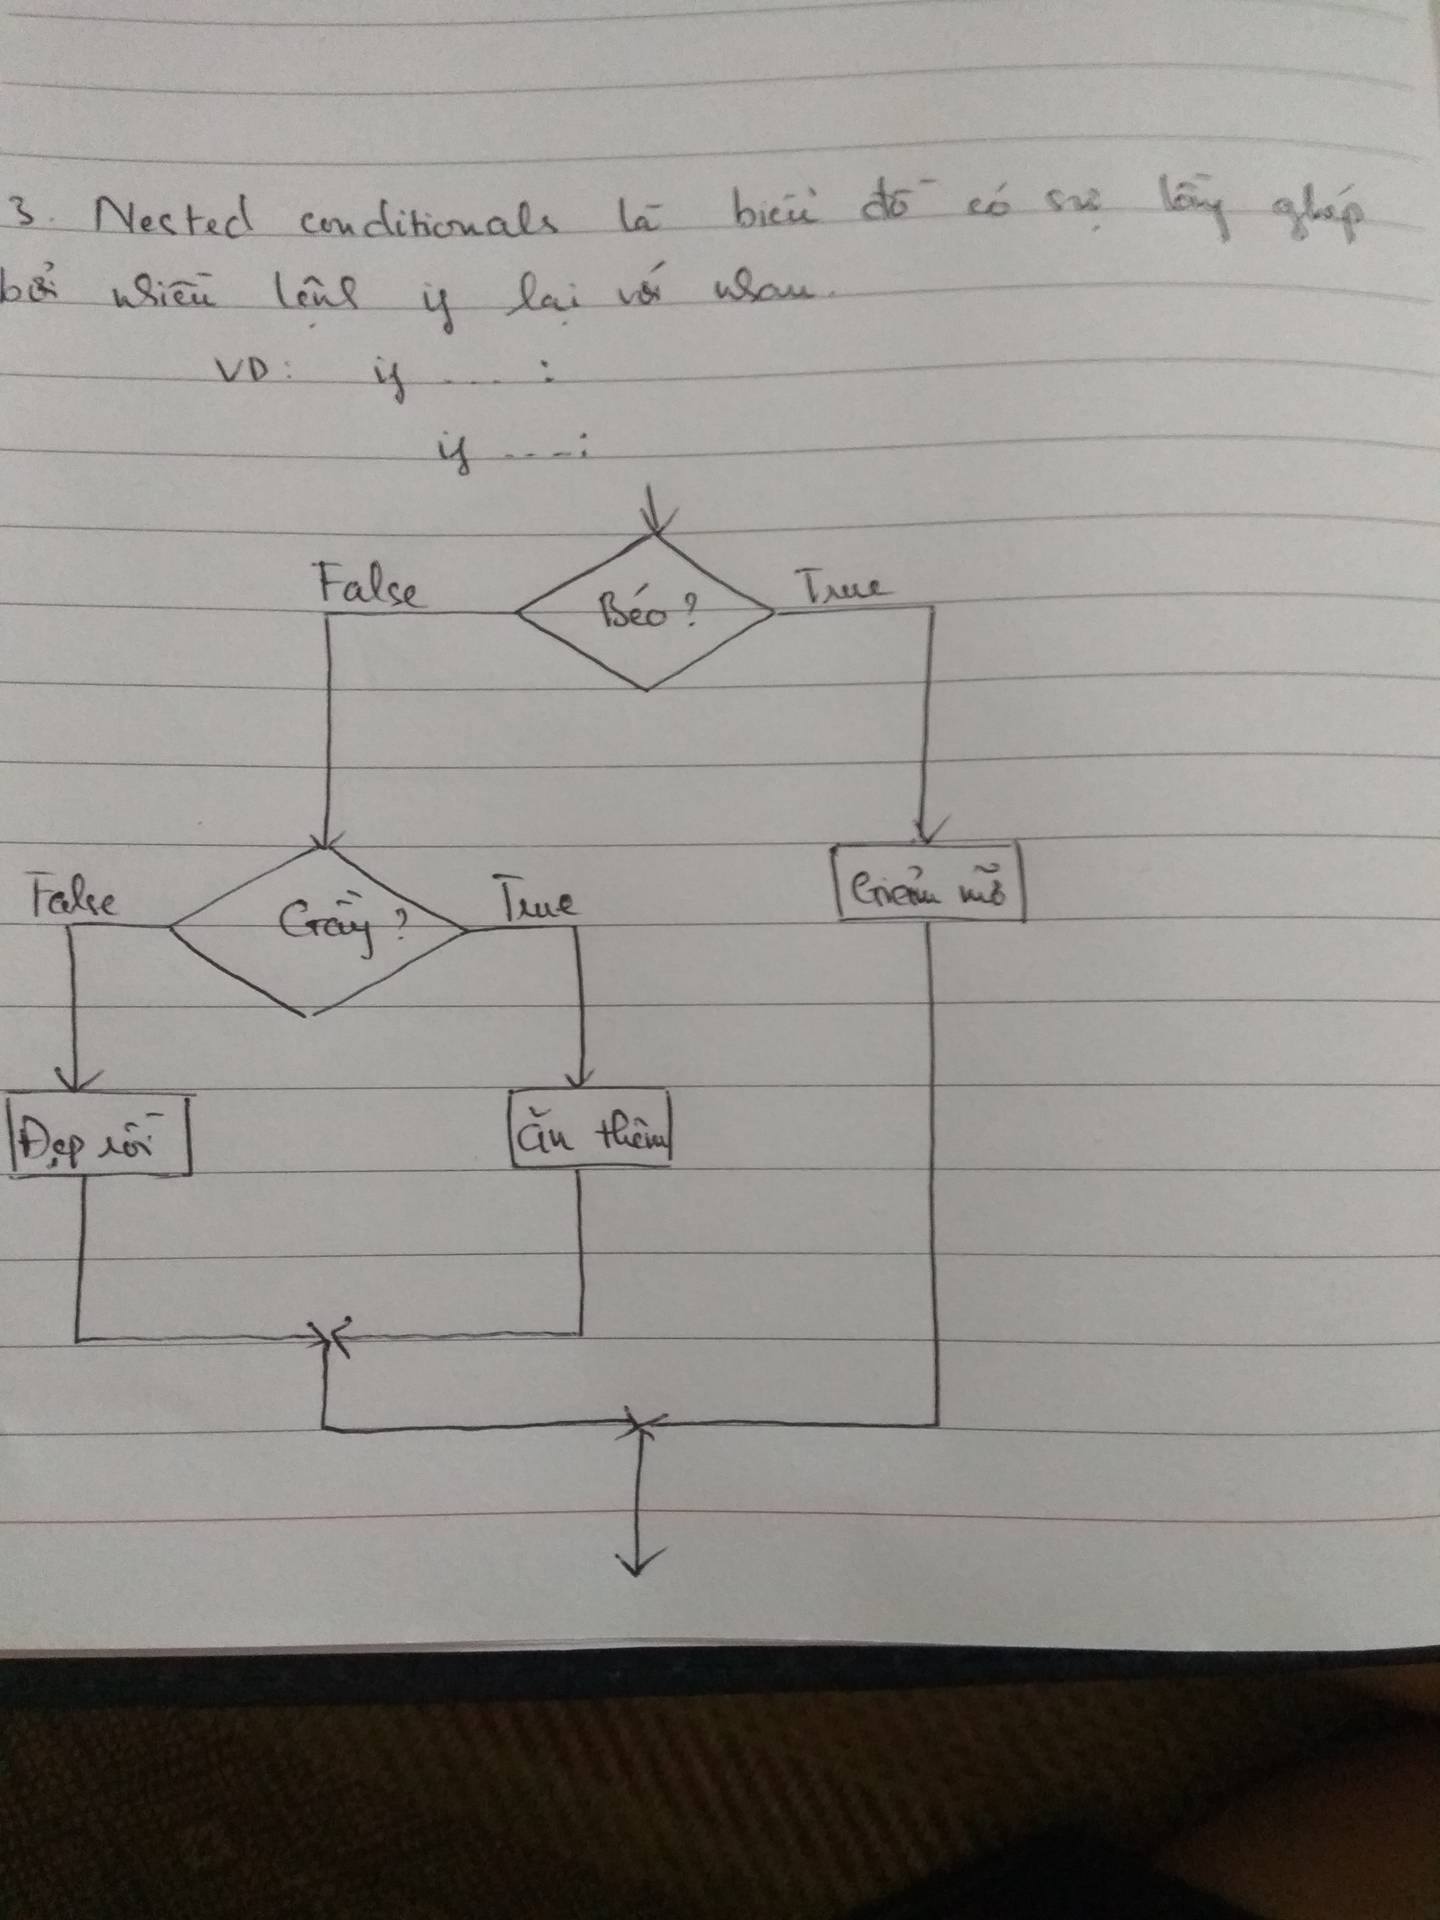 3. Nested conditionals là biểu đồ có sự lồng ghép
bởi nhiều lệnh if lại với nhau.
VD: if .... :
if ....:
False Béo? True
False Gầy? True Giảm mỡ
Đẹp rồi ăn thêm